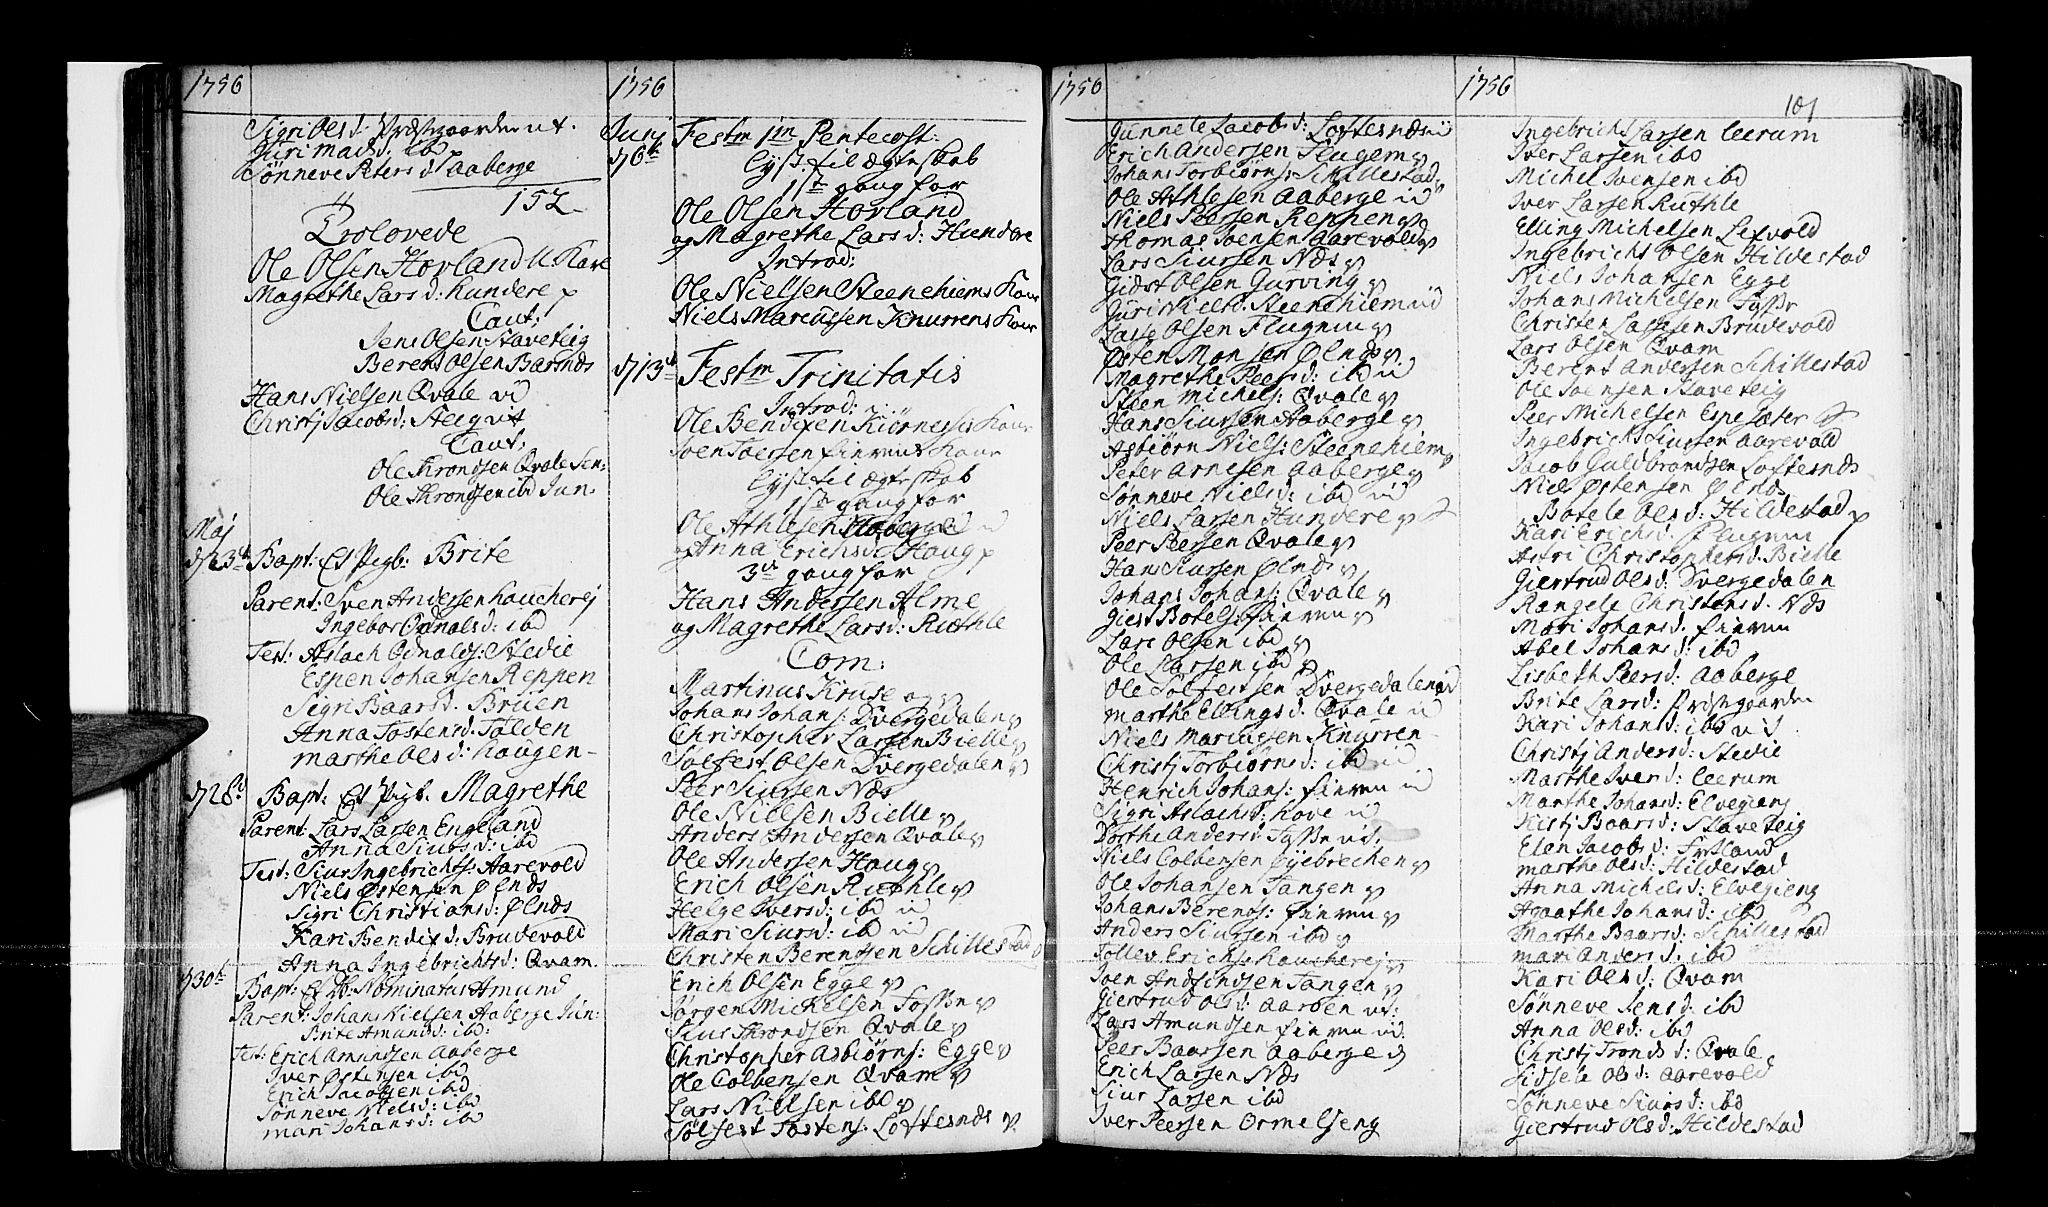 1756
Sigri Olsd. Præstgaarden ut.
Guri Madsd. ibd
Sønneve Peters d. Aaberge
152
Trolovede
Ole Olsen Hovland U: Kare
Magrethe Lars d: Hundere
Caut:
Jens Olsen Staveteig
Berent Olsen Barsnds
Hans Nielsen Qvale
Christj Jacobsd: Steeg ut
Caut:
Ole Throndsen Qvale Sen:
Ole Throndsen ibd Jun.
Maj
d 23de Bapt: Et Pigb: Brite
Parent: Sven Andersen Kaucherej
Ingebor Odnalsd: ibd
Test: Aslach Odnalds: Stedie
Espen Johansen Reppen
Sigri Baarsd. Bruen
Anna Tostensd: Talden
Marthe Olsd: Haugen
d 28d Bapt: Et Pigb. Magrethe
Parent: Lars Larsen Engeland
Anna Siursd: ibd
Test: Siur Ingebrichts: Aarevold
Niels Østensen Ølnds
Sigri Christiansd: Ølnds
Kari Bendixd: Brudevold
Anna Ingebrichtsd: Qvam
d 30te Bapt: Et Nominatus Amund
Parent: Johans Nielsen Aaberge Jun:
Brite Amundsd: ibd:
Test: Erich Amundsen Aaberge
Iver Østensen ibd
Erich Jacobsen ibd
Sønneve Nielsd: ibd
Mari Johansd: ibd
1756
Junj Festm 1m Pentecost:
d 6te Lyst til ægteskab
1ste gang for
Ole Olsen Hovland
og Magrethe Lars d: Hundere
Introd:
Ole Nielsen Steenehiems Kone
Niels Marcussen Knurrens Kone
d 13de Festm Trinitatis
Introd:
Ole Bendixen Kiörness Kone
Joen Joensen Kone
Lyst til ægteskab
1ste gang for
Ole Athlesen Aaberge
og Anna Erichsd: Haug
3die gang for
Hans Andersen Alme
og Magrethe Larsd: Ruthle
Com:
Martinus Kruse og
Johans Johans: Dvergedalen
Christopher Larsen Bielle
Sølfest Olsen Dvergedalen
Peer Siursen Nds
Ole Nielsen Bielle
Anders Andersen Qvale
Ole Andersen Haug
Erich Olsen Ruthle
Helge Iversd: ibd
Mari Siursd: ibd
Christen Berentsen Schillestad
Erich Olsen Egge
Jørgen Michelsen
Siur Throndsen Qvale
Christopher Asbiørns: Egge
Ole Colbensen Qvam
Lars Nielsen ibd
Sølfest Tostens: Loftesnds
1756
Gunnele Jacobsd: Loftesnds
Erich Andersen Flugem
Johans Torbiørns: Schillestad
Ole Athlesen Aaberge
Niels Peersen Reppen
Thomas Joensen Aarevold
Lars Siursen Nds
Gidst Olsen Gurving
Guri Nielsd: Steenehiem
Lasse Olsen Flugem
Østen Monsen Ølnds
Magrethe Peersd: ibd
Steen Michels: Qvale
Hans Siursen Aaberge
Asbiørn Niels: Steenehiem
Peter Arnesen Aaberge
Sønneve Nielsd: ibd
Niels Larsen Hundere
Peer Peersen Qvale
Hans Siursen Ølnds
Johans Johans: Qvale
Giest Botels:
Lars Olsen ibd
Ole Larsen ibd
Ole Sølfestsen Dvergedalen
Marthe Ellingsd. Qvale
Niels Marcusen Knurren
Christj Torbiørnsd: ibd
Henrich Johans:
Sigri Aslachsd: Hove
Dorthe Andersd:
Niels Colbensen Øyebrechen
Ole Johansen Tangen
Johans Berents:
Anders Siursen ibd
Tollev Erichs: Kaucherej
Joen Andfindsen Tangen
Giertrud Olsd: Aaroen ut:
Lars Amundsen
Peer Baarsen Aaberge
Erich Larsen Nds
Siur Larsen ibd
Iver Peersen Ormelseng
1756
101
Ingebricht Larsen Leerum
Iver Larsen ibd
Michel Svensen ibd
Iver Larsen Ruthle
Elling Michelsen Lexvold
Ingebricht Olsen Hildestad
Niels Johansen Egge
Johans Michelsen
Christen Lassesen Brudevold
Lars Olsen Qvam
Berent Andersen Schillestad
Ole Joensen Staveteig
Peer Michelsen Espesæter
Ingebricht Siursen Aarevold
Jacob Guldbrandsen Loftesnds
Niels Østensen Ølnds
Botele Olsd: Hildestad
Kari Erichsd: Flugem
Astri Christophersd: Bielle
Giertrud Olsd: Dvergedalen
Rangele Christensd. Nds
Mari Johansd:
Abel Johansd: ibd
Lisbeth Peersd: Aaberge
Brite Larsd: Præstgaarden
Kari Johansd: ibd
Christj Andersd: Stedie
Marthe Iversd: Leerum
Marthe Johansd: Elvegieng
Kistj Baarsd: Staveteig
Elen Jacobsd:
Marthe Olsd: Hildestad
Anna Michelsd: Elvegieng
Agaathe Johansd: ibd
Marthe Baarsd: Schillestad
Mari Andersd: ibd
Kari Olsd: Qvam
Sønneve Jensd: ibd
Anna Olsd: ibd
Christj Tronds d: Qvale
Sidsele Olsd: Aarevold
Sønneve Siursd: ibd
Giertrud Olsd: Hildestad